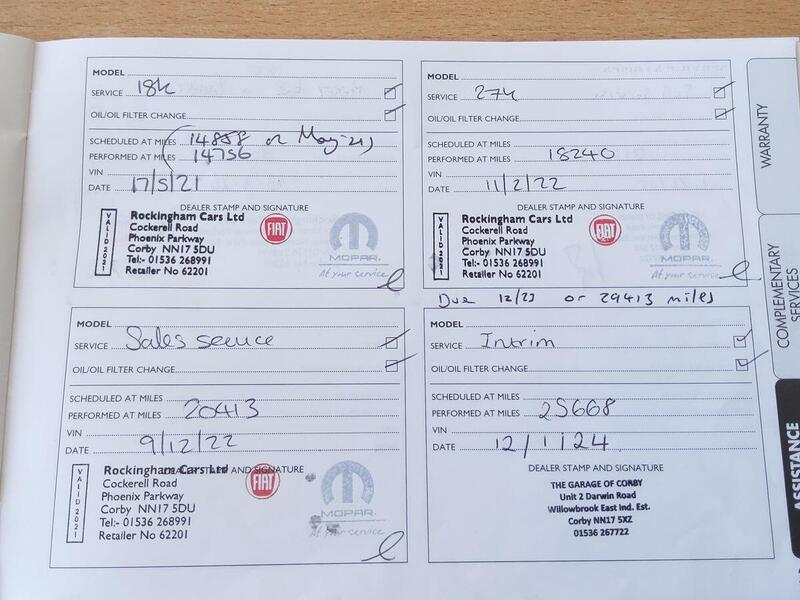 MODEL
SERVICE 18K
OIL/OIL FILTER CHANGE
SCHEDULED AT MILES 14858 or May-21)
PERFORMED AT MILES 14756
VIN
DATE 17/5/21
DEALER STAMP AND SIGNATURE
VALID 2021
Rockingham Cars Ltd
Cockerell Road
Phoenix Parkway
Corby NN17 5DU
Tel:- 01536 268991
Retailer No 62201
FIAT
MOPAR
At your service
MODEL
SERVICE 27K
OIL/OIL FILTER CHANGE
SCHEDULED AT MILES
PERFORMED AT MILES 18240
VIN
DATE 11/2/22
DEALER STAMP AND SIGNATURE
VALID 2021
Rockingham Cars Ltd
Cockerell Road
Phoenix Parkway
Corby NN17 5DU
Tel:- 01536 268991
Retailer No 62201
FIAT
MOPAR
At your service
Due 12/23 or 29413 miles
MODEL
SERVICE Sales service
OIL/OIL FILTER CHANGE
SCHEDULED AT MILES
PERFORMED AT MILES 20413
VIN
DATE 9/12/22
DEALER STAMP AND SIGNATURE
VALID 2021
Rockingham Cars Ltd
Cockerell Road
Phoenix Parkway
Corby NN17 5DU
Tel:- 01536 268991
Retailer No 62201
FIAT
MOPAR
At your service
MODEL
SERVICE Intrim
OIL/OIL FILTER CHANGE
SCHEDULED AT MILES
PERFORMED AT MILES 25668
VIN
DATE 12/1/24
DEALER STAMP AND SIGNATURE
THE GARAGE OF CORBY
Unit 2 Darwin Road
Willowbrook East Ind. Est.
Corby NN17 5XZ
01536 267722
WARRANTY
COMPLEMENTARY
SERVICES
ASSISTANCE